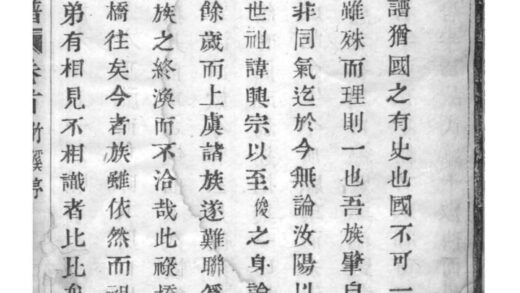 譜猶國之有史也國不可一
雖殊而理則一也吾族肇自
非同氣迄於今無論汝陽以
世祖諱興宗以至俊之身論
餘歲而上虞諸族遂難聯
族之終渙而不洽哉此祿
橋往矣今者族雖依然而祖
弟有相見不相識者比比
譜 卷首